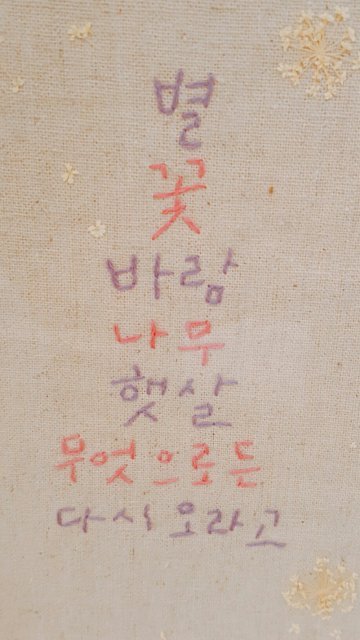 별
꽃
바람
나무
햇살
무엇으로든
다시 오라고